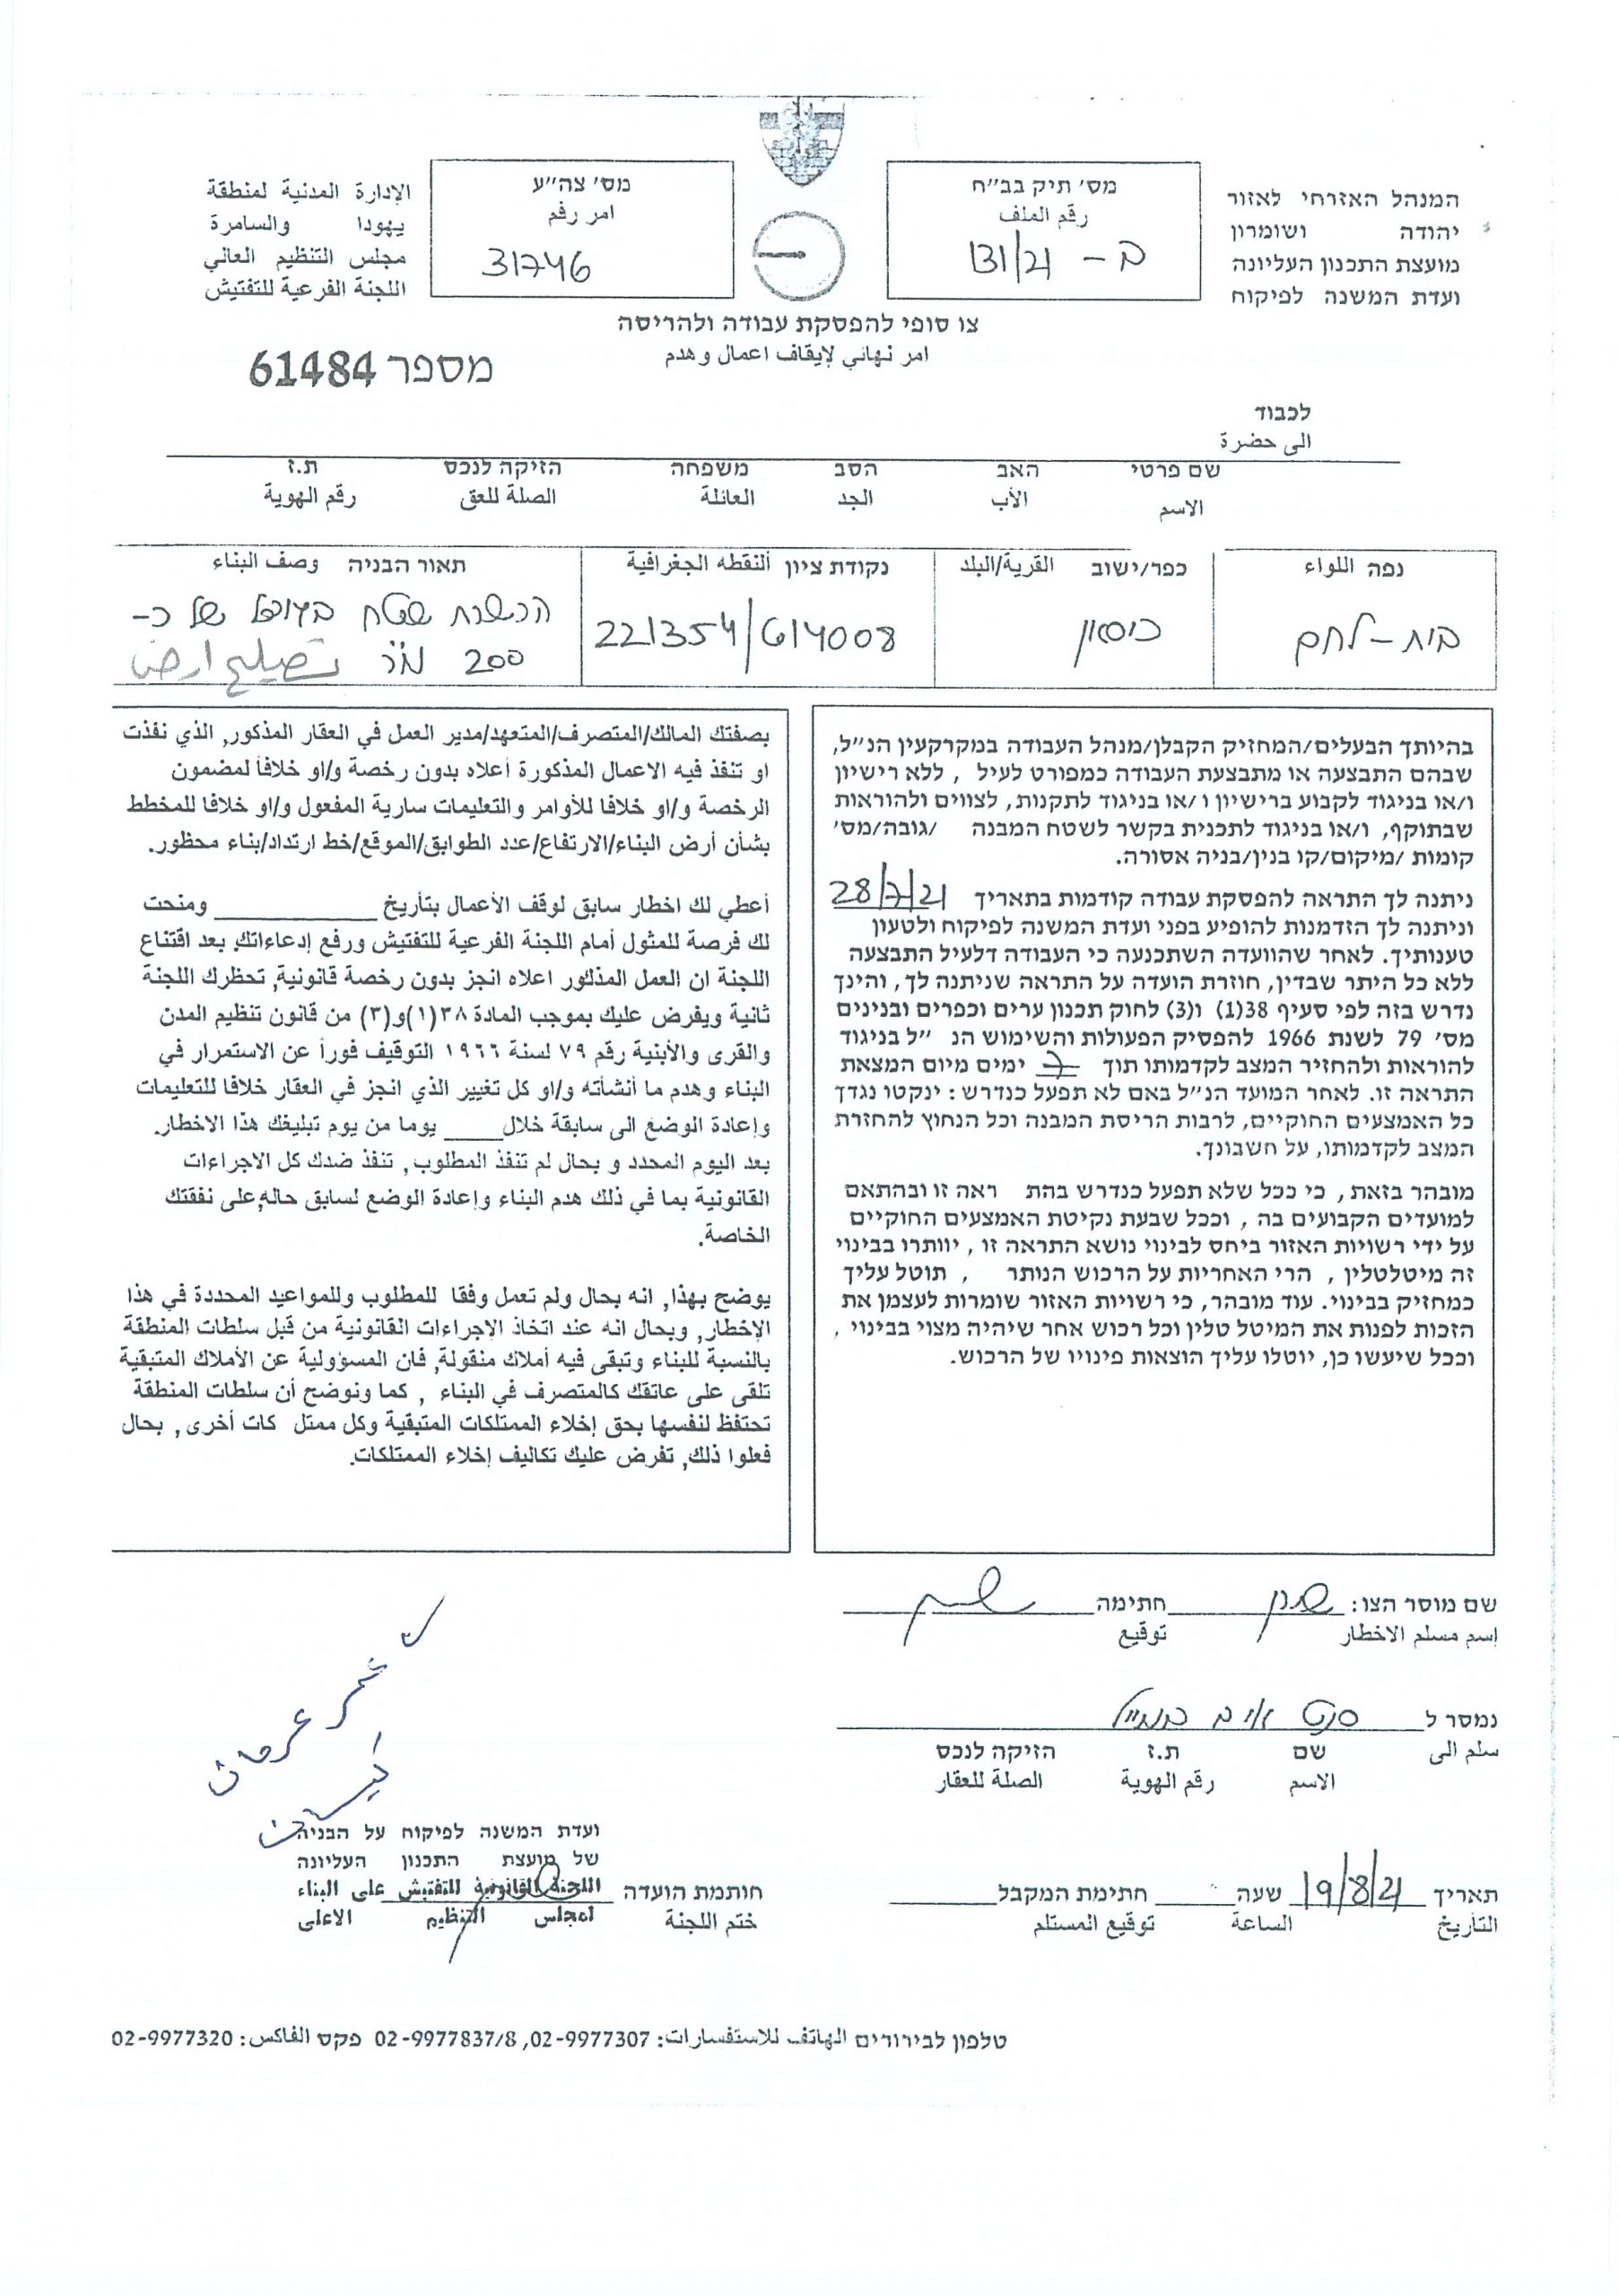 המנהל האזרחי לאזור
יהודה ושומרון
מועצת התכנון העליונה
ועדת המשנה לפיקוח
מס׳ תיק בב״ח
رقم الملف
ב - 131/21
מס׳ צה״ע
امر رقم
31746
الإدارة المدنية لمنطقة
يهودا والسامرة
مجلس التنظيم العالي
اللجنة الفرعية للتفتيش
צו סופי להפסקת עבודה ולהריסה
امر نهائي لإيقاف اعمال وهدم
מספר 61484
לכבוד
الى حضرة
שם פרטי האב הסב משפחה הזיקה לנכס ת.ז
الاسم الأب الجد العائلة الصلة للعق رقم الهوية
נפה اللواء
בית-לחם
כפר/ישוב القرية/البلد
כיסאן
נקודת ציון ألنقطه الجغرافية
221354/614008
תאור הבניה وصف البناء
הכשרת שטח בגודל של כ-
200 מ"ר تصليح ارض
בהיותך הבעלים/המחזיק הקבלן/מנהל העבודה במקרקעין הנ״ל,
שבהם התבצעה או מתבצעת העבודה כמפורט לעיל , ללא רישיון
ו/או בניגוד לקבוע ברישיון ו /או בניגוד לתקנות, לצווים ולהוראות
שבתוקף, ו/או בניגוד לתכנית בקשר לשטח המבנה /גובה/מס׳
קומות /מיקום/קו בנין/בניה אסורה.
ניתנה לך התראה להפסקת עבודה קודמות בתאריך 28/7/21
וניתנה לך הזדמנות להופיע בפני ועדת המשנה לפיקוח ולטעון
טענותיך. לאחר שהוועדה השתכנעה כי העבודה דלעיל התבצעה
ללא כל היתר שבדין, חוזרת הועדה על התראה שניתנה לך, והינך
נדרש בזה לפי סעיף 38(1) ו(3) לחוק תכנון ערים וכפרים ובנינים
מס׳ 79 לשנת 1966 להפסיק הפעולות והשימוש הנ ״ל בניגוד
להוראות ולהחזיר המצב לקדמותו תוך 7 ימים מיום המצאת
התראה זו. לאחר המועד הנ״ל באם לא תפעל כנדרש : ינקטו נגדך
כל האמצעים החוקיים, לרבות הריסת המבנה וכל הנחוץ להחזרת
המצב לקדמותו, על חשבונך.
מובהר בזאת , כי ככל שלא תפעל כנדרש בהת ראה זו ובהתאם
למועדים הקבועים בה , וככל שבעת נקיטת האמצעים החוקיים
על ידי רשויות האזור ביחס לבינוי נושא התראה זו , יוותרו בבינוי
זה מיטלטלין , הרי האחריות על הרכוש הנותר , תוטל עליך
כמחזיק בבינוי. עוד מובהר, כי רשויות האזור שומרות לעצמן את
הזכות לפנות את המיטל טלין וכל רכוש אחר שיהיה מצוי בבינוי ,
וככל שיעשו כן, יוטלו עליך הוצאות פינויו של הרכוש.
بصفتك المالك/المتصرف/المتعهد/مدير العمل في العقار المذكور, الذي نفذت
او تنفذ فيه الاعمال المذكورة أعلاه بدون رخصة و/او خلافاً لمضمون
الرخصة و/او خلافا للأوامر والتعليمات سارية المفعول و/او خلافا للمخطط
بشأن أرض البناء/الارتفاع/عدد الطوابق/الموقع/خط ارتداد/بناء محظور.
أعطي لك اخطار سابق لوقف الأعمال بتأريخ ____________ ومنحت
لك فرصة للمثول أمام اللجنة الفرعية للتفتيش ورفع إدعاءاتك. بعد اقتناع
اللجنة ان العمل المذكور اعلاه انجز بدون رخصة قانونية, تحظرك اللجنة
ثانية ويفرض عليك بموجب المادة ٣٨(١)و(٣) من قانون تنظيم المدن
والقرى والأبنية رقم ٧٩ لسنة ١٩٦٦ التوقيف فوراً عن الاستمرار في
البناء وهدم ما أنشأته و/او كل تغيير الذي انجز في العقار خلافا للتعليمات
وإعادة الوضع الى سابقة خلال____ يوما من يوم تبليغك هذا الاخطار.
بعد اليوم المحدد و بحال لم تنفذ المطلوب, تنفذ ضدك كل الاجراءات
القانونية بما في ذلك هدم البناء وإعادة الوضع لسابق حاله,على نفقتك
الخاصة.
يوضح بهذا, انه بحال ولم تعمل وفقا للمطلوب وللمواعيد المحددة في هذا
الإخطار, وبحال انه عند اتخاذ الإجراءات القانونية من قبل سلطات المنطقة
بالنسبة للبناء وتبقى فيه أملاك منقولة, فان المسؤولية عن الأملاك المتبقية
تلقى على عاتقك كالمتصرف في البناء , كما ونوضح أن سلطات المنطقة
تحتفظ لنفسها بحق إخلاء الممتلكات المتبقية وكل ممتل كات أخرى, بحال
فعلوا ذلك, تفرض عليك تكاليف إخلاء الممتلكات.
שם מוסר הצו: חתימה
إسم مسلم الاخطار توقيع
נמסר ל
سلم الى
שם ת.ז הזיקה לנכס
الاسم رقم الهوية الصلة للعقار
תאריך 19/8/21 שעה חתימת המקבל
التأريخ الساعة توقيع المستلم
חותמת הועדה
ختم اللجنة
ועדת המשנה לפיקוח על הבניה
של מועצת התכנון העליונה
اللجنة القانونية للتفتيش على البناء
لمجلس التنظيم الاعلى
טלפון לבירורים الهاتف للاستفسارات: 02-9977307, 02-9977837/8 פקס الفاكس: 02-9977320